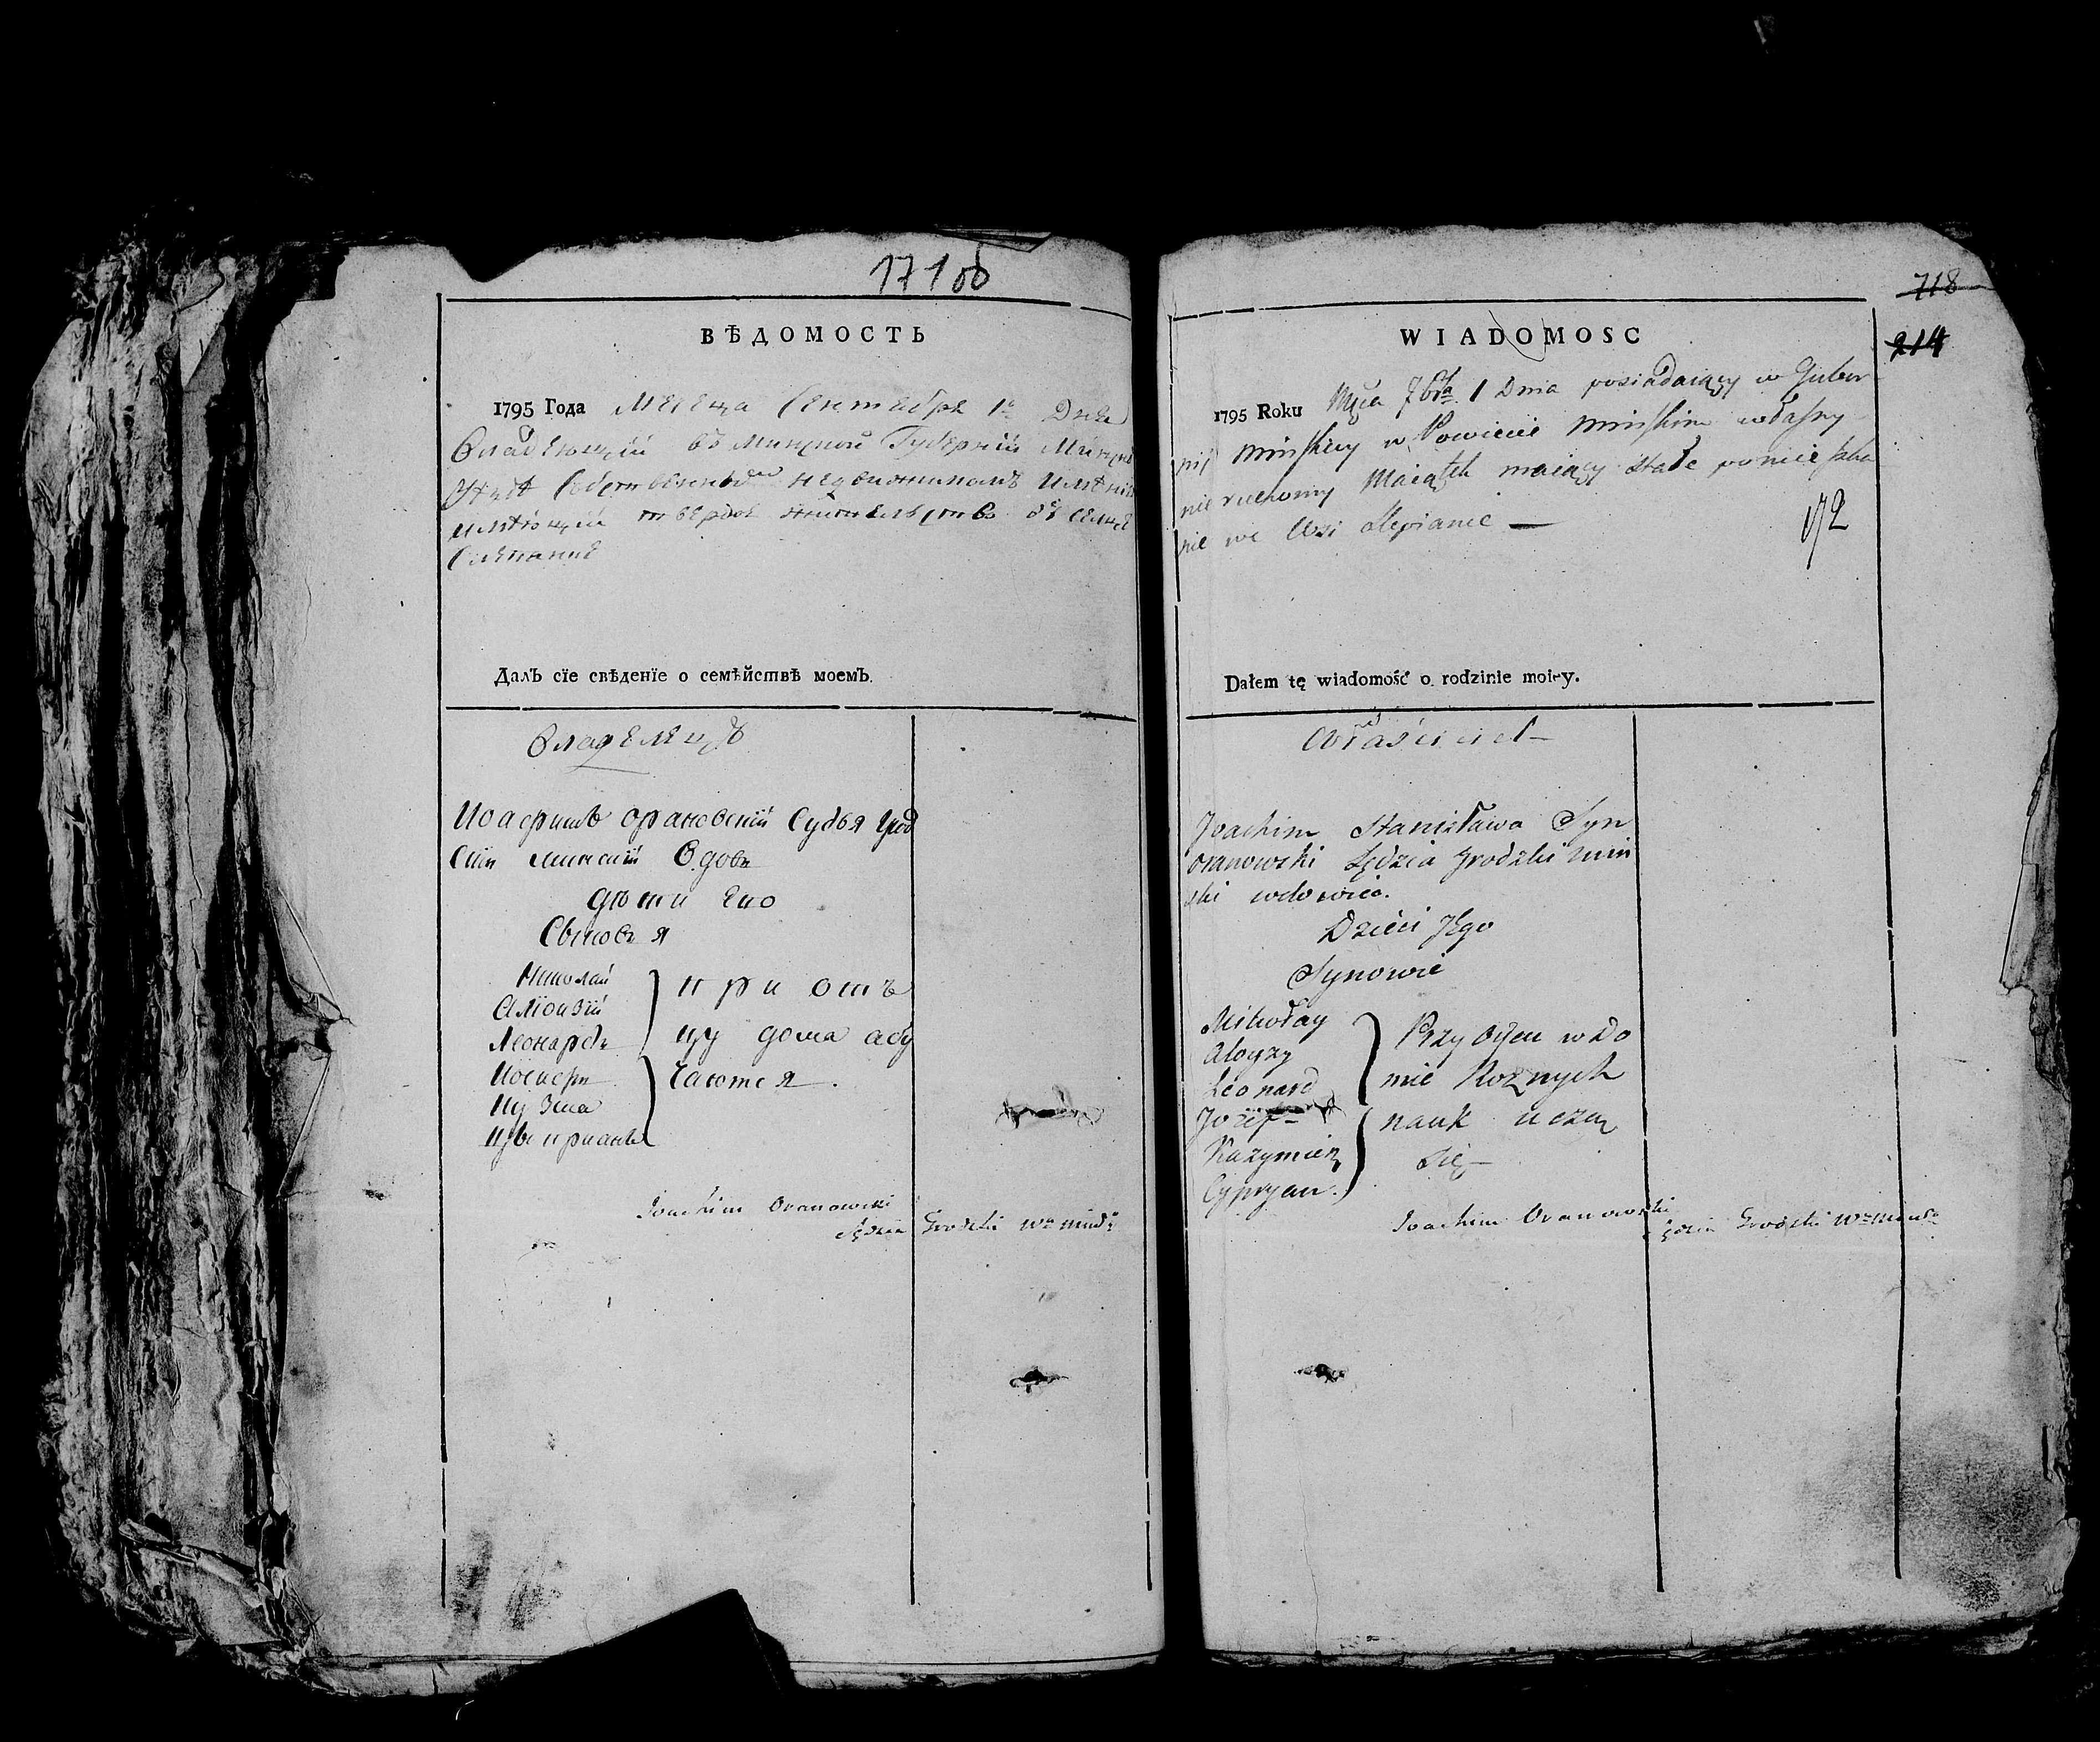 171 об
ВѢДОМОСТЬ
1795 Года Месяца Сентебре 1го Дня
Владеющїй въ Минской Губернїи Минск
Уезде Собственнымъ недвижимымъ имѣнїем
имѣющїй твердое жительство въ селце
Слепянке
Далъ сїе свѣденїе о семѣйствѣ моемъ.
Владелецъ
Иоафимъ орановскїй Судья Грод
скїи минскїй Вдовъ
дѣти Его
Сыновья
Николай
Алїоизїй
Леонардъ
Иосифъ
Кузма
Цыприанъ
при отъ
цу дома абу
чаются.
Joachim Oranowski
Sędzia Grodzki Wa Mińsgo
718
214
WIADOMOSC
1795 Roku Mca 7bra 1 Dnia posiadaiący w Guber
nij Minskiey w Powiecie Minskim własny
nieruchomy Maiątek maiący stałe pomieszka
nie we Wsi Slepiance —
172
Dałem tę wiadomość o rodzinie moiey.
Właściciel
Joachim Stanisława Syn
Oranowski Sędzia Grodzki min
ski wdowiec.
Dzieci Jego
Synowie
Mikołay
Aloyzy
Leonard
Jozef
Kazymierz
Cypryan.
Przy Oycu w Do
mie Roznych
nauk uczą
się
Joachim Oranowski
Sędzia Grodzki Wa Mińsgo